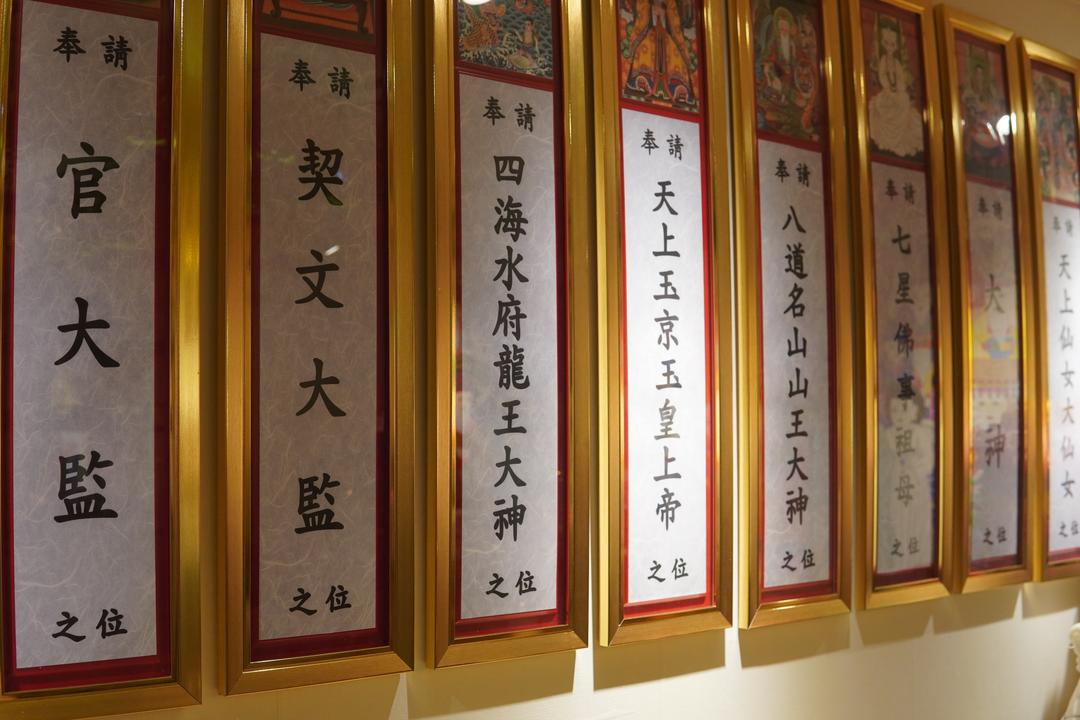 奉請
官大監
之位
奉請
契文大監
之位
奉請
四海水府龍王大神
之位
奉請
天上玉京玉皇上帝
之位
奉請
八道名山山王大神
之位
奉請
七星佛事祖母
之位
奉請
大神
之位
奉請
天上仙女大仙女
之位